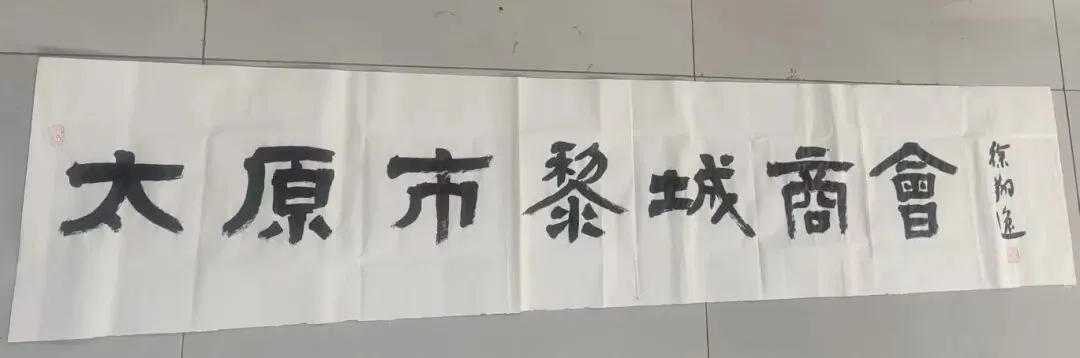 太原市黎城商會
徐翔逸